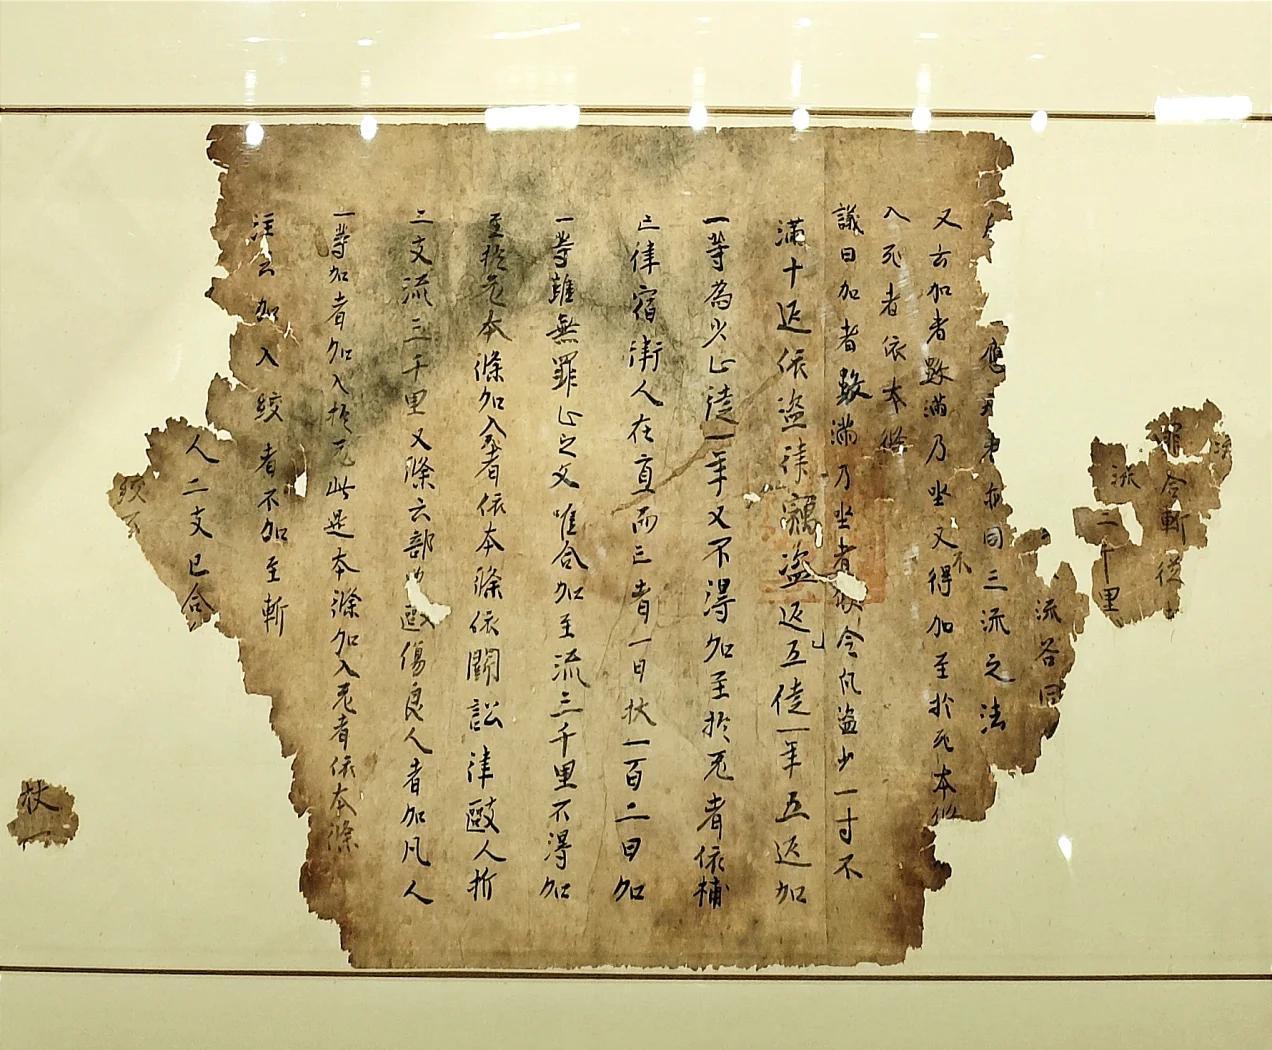 罪合斬從
流
二千里
流各同
應 亦同三流之法
又云加者數滿乃坐又不得加至於死本條
入死者依本條
議曰加者數滿乃坐者假令凡盜少一寸不
滿十疋依盜律竊盜疋五徒一年五疋加
一等為少止徒一年又不得加至於死者依捕
亡律宿衛人在直而亡者一日杖一百二日加
一等雖無罪止之文唯合加至流三千里不得加
至於死本條加入者依本條依鬭訟律毆人折
二支流三千里又條云部曲毆傷良人者加凡人
一等加者加入於死此是本條加入死者依本條
注云加入絞者不加至斬
人二支已合
絞不
杖一